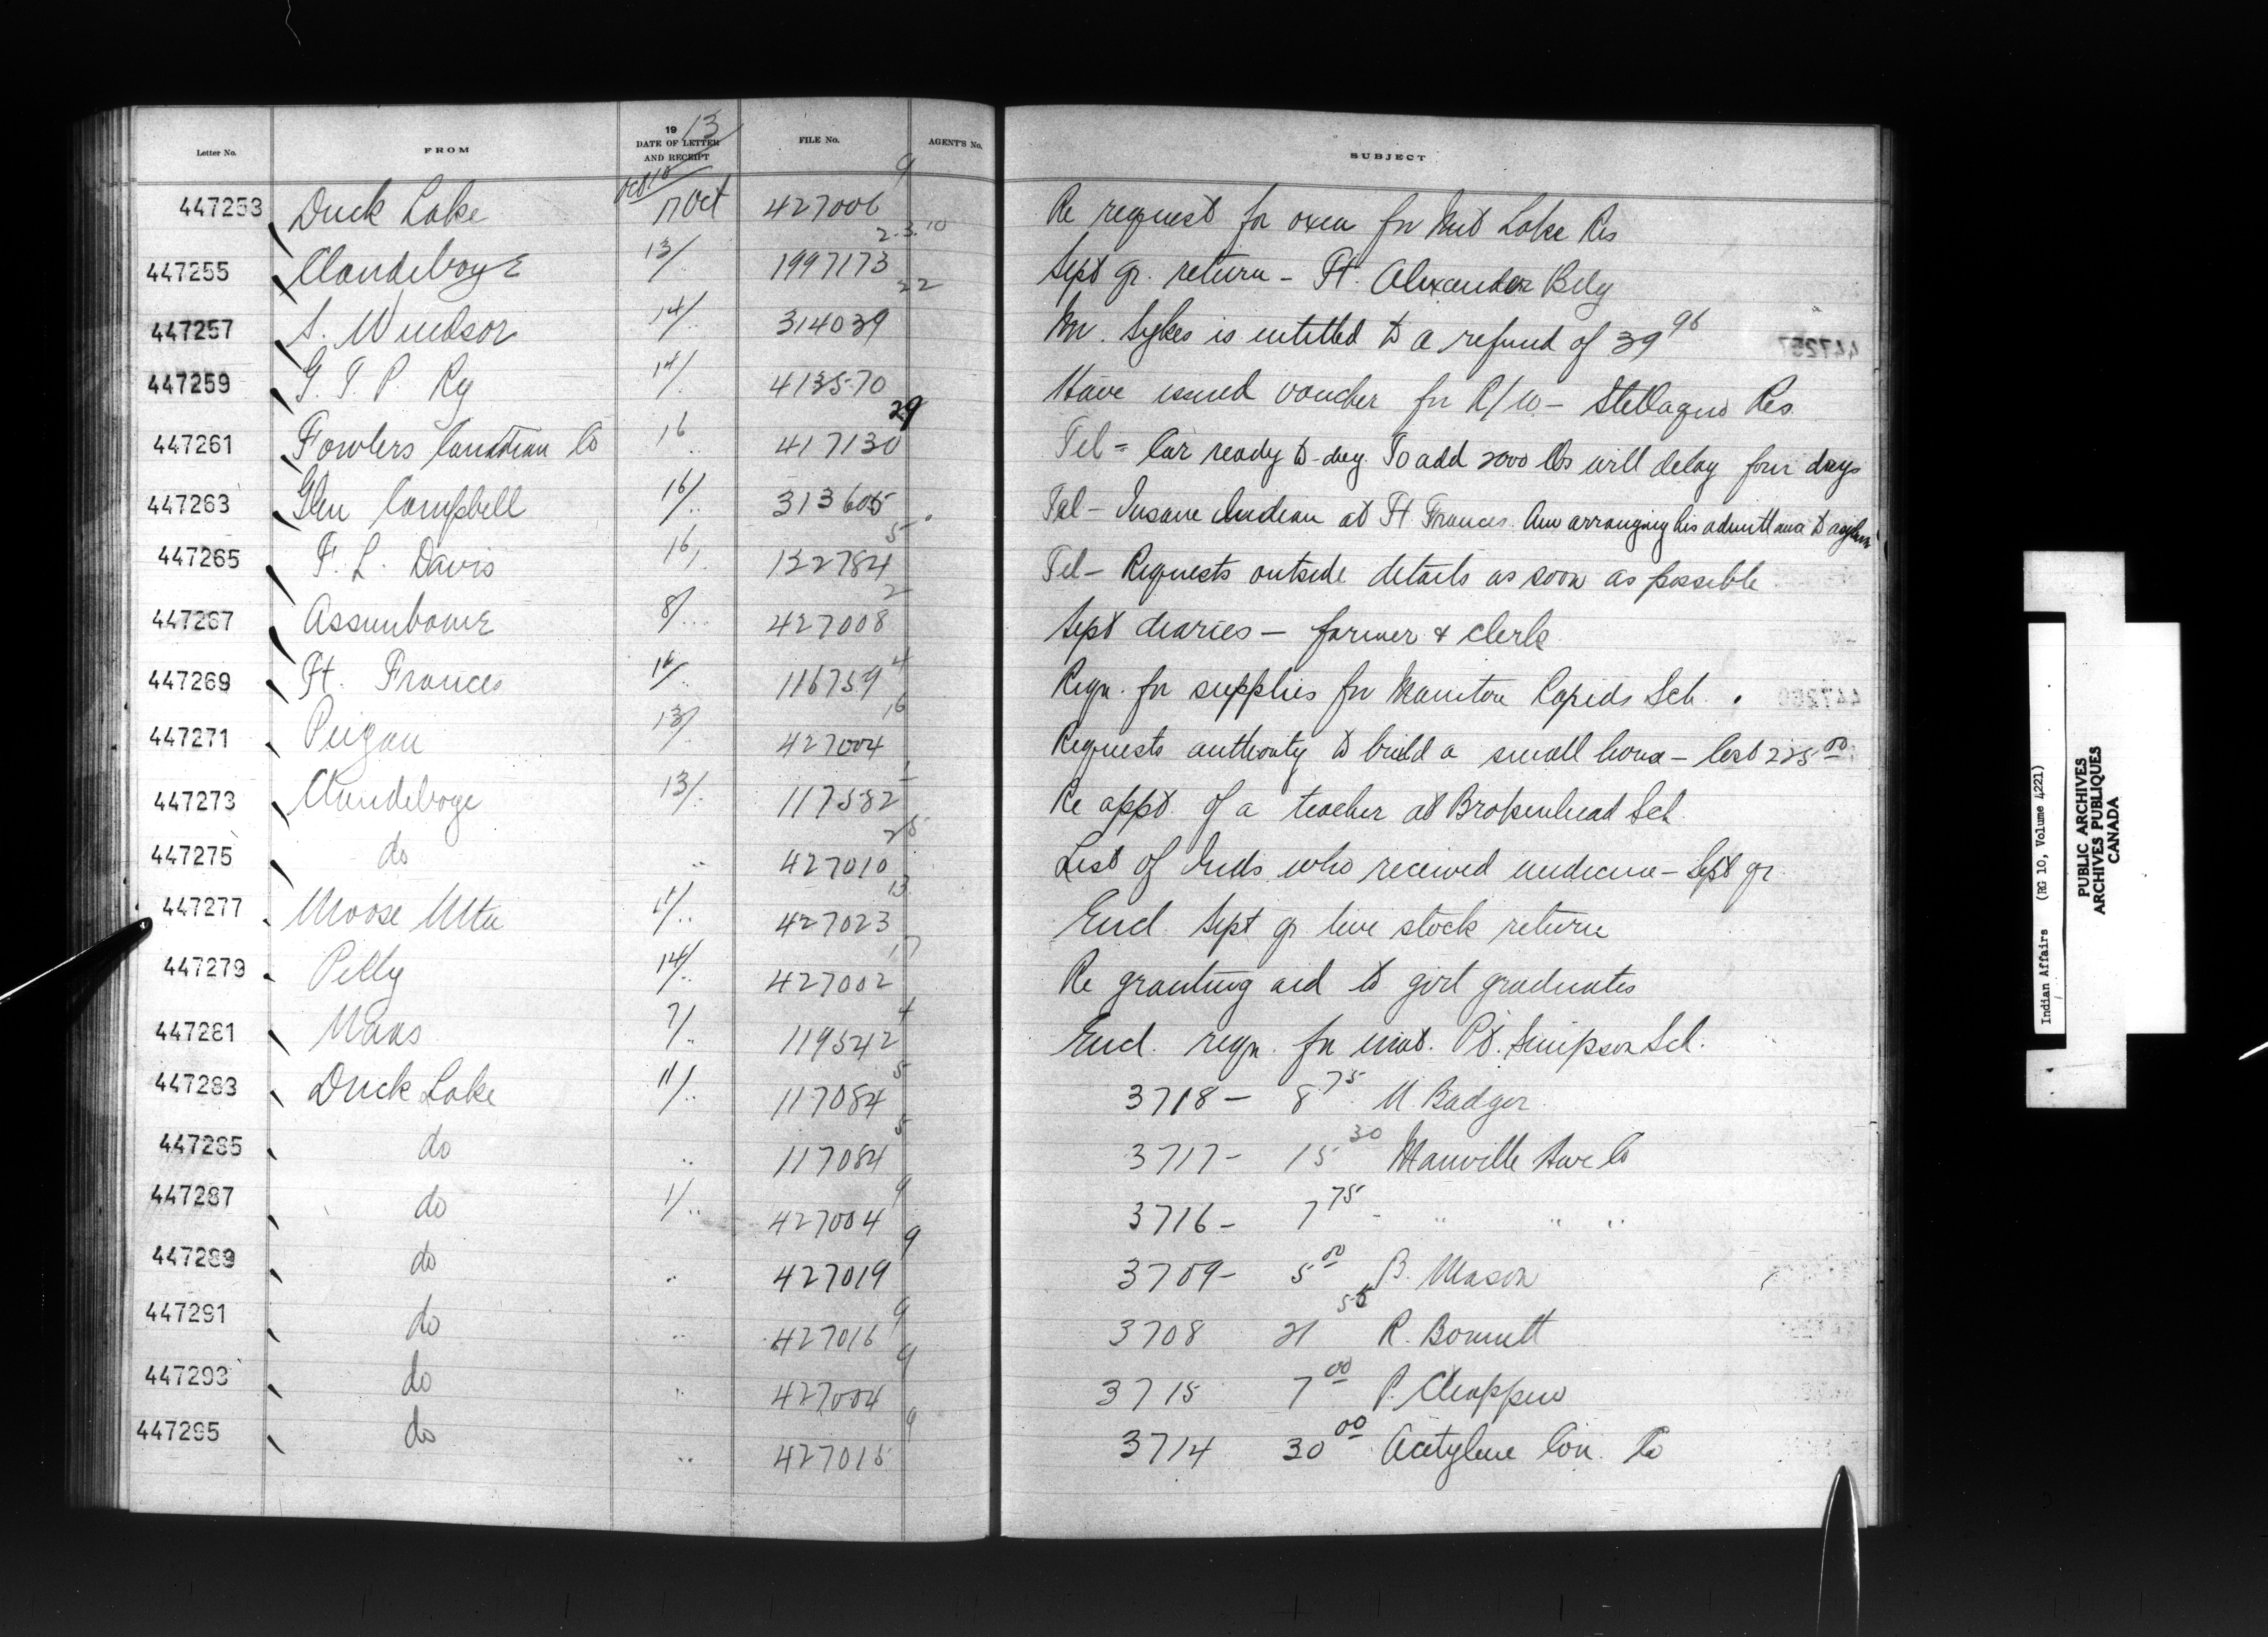 Letter No. FROM 1913 DATE OF LETTER AND RECEIPT FILE No. AGENT'S No. SUBJECT
Oct 18
447253 Duck Lake 17 Oct 427006 9 Re request for oxen for Lake Res
447255 Clandeboye 13/ " 1997173 2.3.10 Sept qr. return - Ft. Alexander Bdg
447257 S. Windsor 14/ " 314039 22 Mr. Sykes is entitled to a refund of 39 96
447259 G. T. P. Ry 14/ " 413570 Have issued voucher for R/W - Stellaquo Res.
447261 Fowlers Canadian Co 16 " 417130 29 Tel - Car ready to-day. To add 2000 lbs will delay four days
447263 Glen Campbell 16/ " 313605 Tel - Insane Indian at Ft Frances. Am arranging his admittance to asylum
447265 F. L. Davis 16/ " 122784 5 Tel - Requests outside details as soon as possible
447267 Assiniboine 8/ " 427008 2 Sept diaries - farmer & clerk
447269 Ft. Frances 14/ " 116759 4 Reqn. for supplies for Manitou Rapids Sch.
447271 Peigan 13/ " 427004 16 Requests authority to build a small house - Cost 225 00
447273 Clandeboye 13/ " 117582 1 Re appt. of a teacher at Brokenhead Sch
447275 do " 427010 25 List of Inds who received medicine - Sept qr
447277 Moose Mtn 11/ " 427023 13 Encl. Sept qr live stock return
447279 Pelly 14/ " 427002 17 Re granting aid to girl graduates
447281 Naas 7/ " 119542 4 Encl. reqn. for mat. Pt. Simpson Sch.
447283 Duck Lake 11/ " 117084 5 3718 - 8 75 M. Badger
447285 do " 117084 5 3717 - 15 30 Manville Hwe Co
447287 do 1/ " 427004 9 3716 - 7 75 - " " "
447289 do " 427019 9 3709 - 5 00 B. Mason
447291 do " 427016 9 3708 21 55 R. Bonnett
447293 do " 427004 9 3715 7 00 P. Chappin
447295 do " 427015 9 3714 30 00 Acetylene Con. Co
Indian Affairs (RG 10, Volume 4221)
PUBLIC ARCHIVES
ARCHIVES PUBLIQUES
CANADA